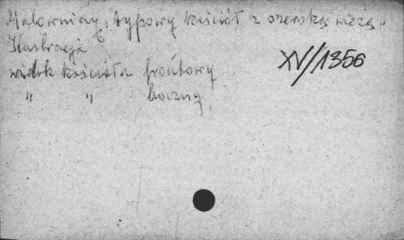 Malowniczy, typowy kościół z szeroką wieżą"
Ilustracja
widok kościoła frontowy
" " boczny
XV/1356